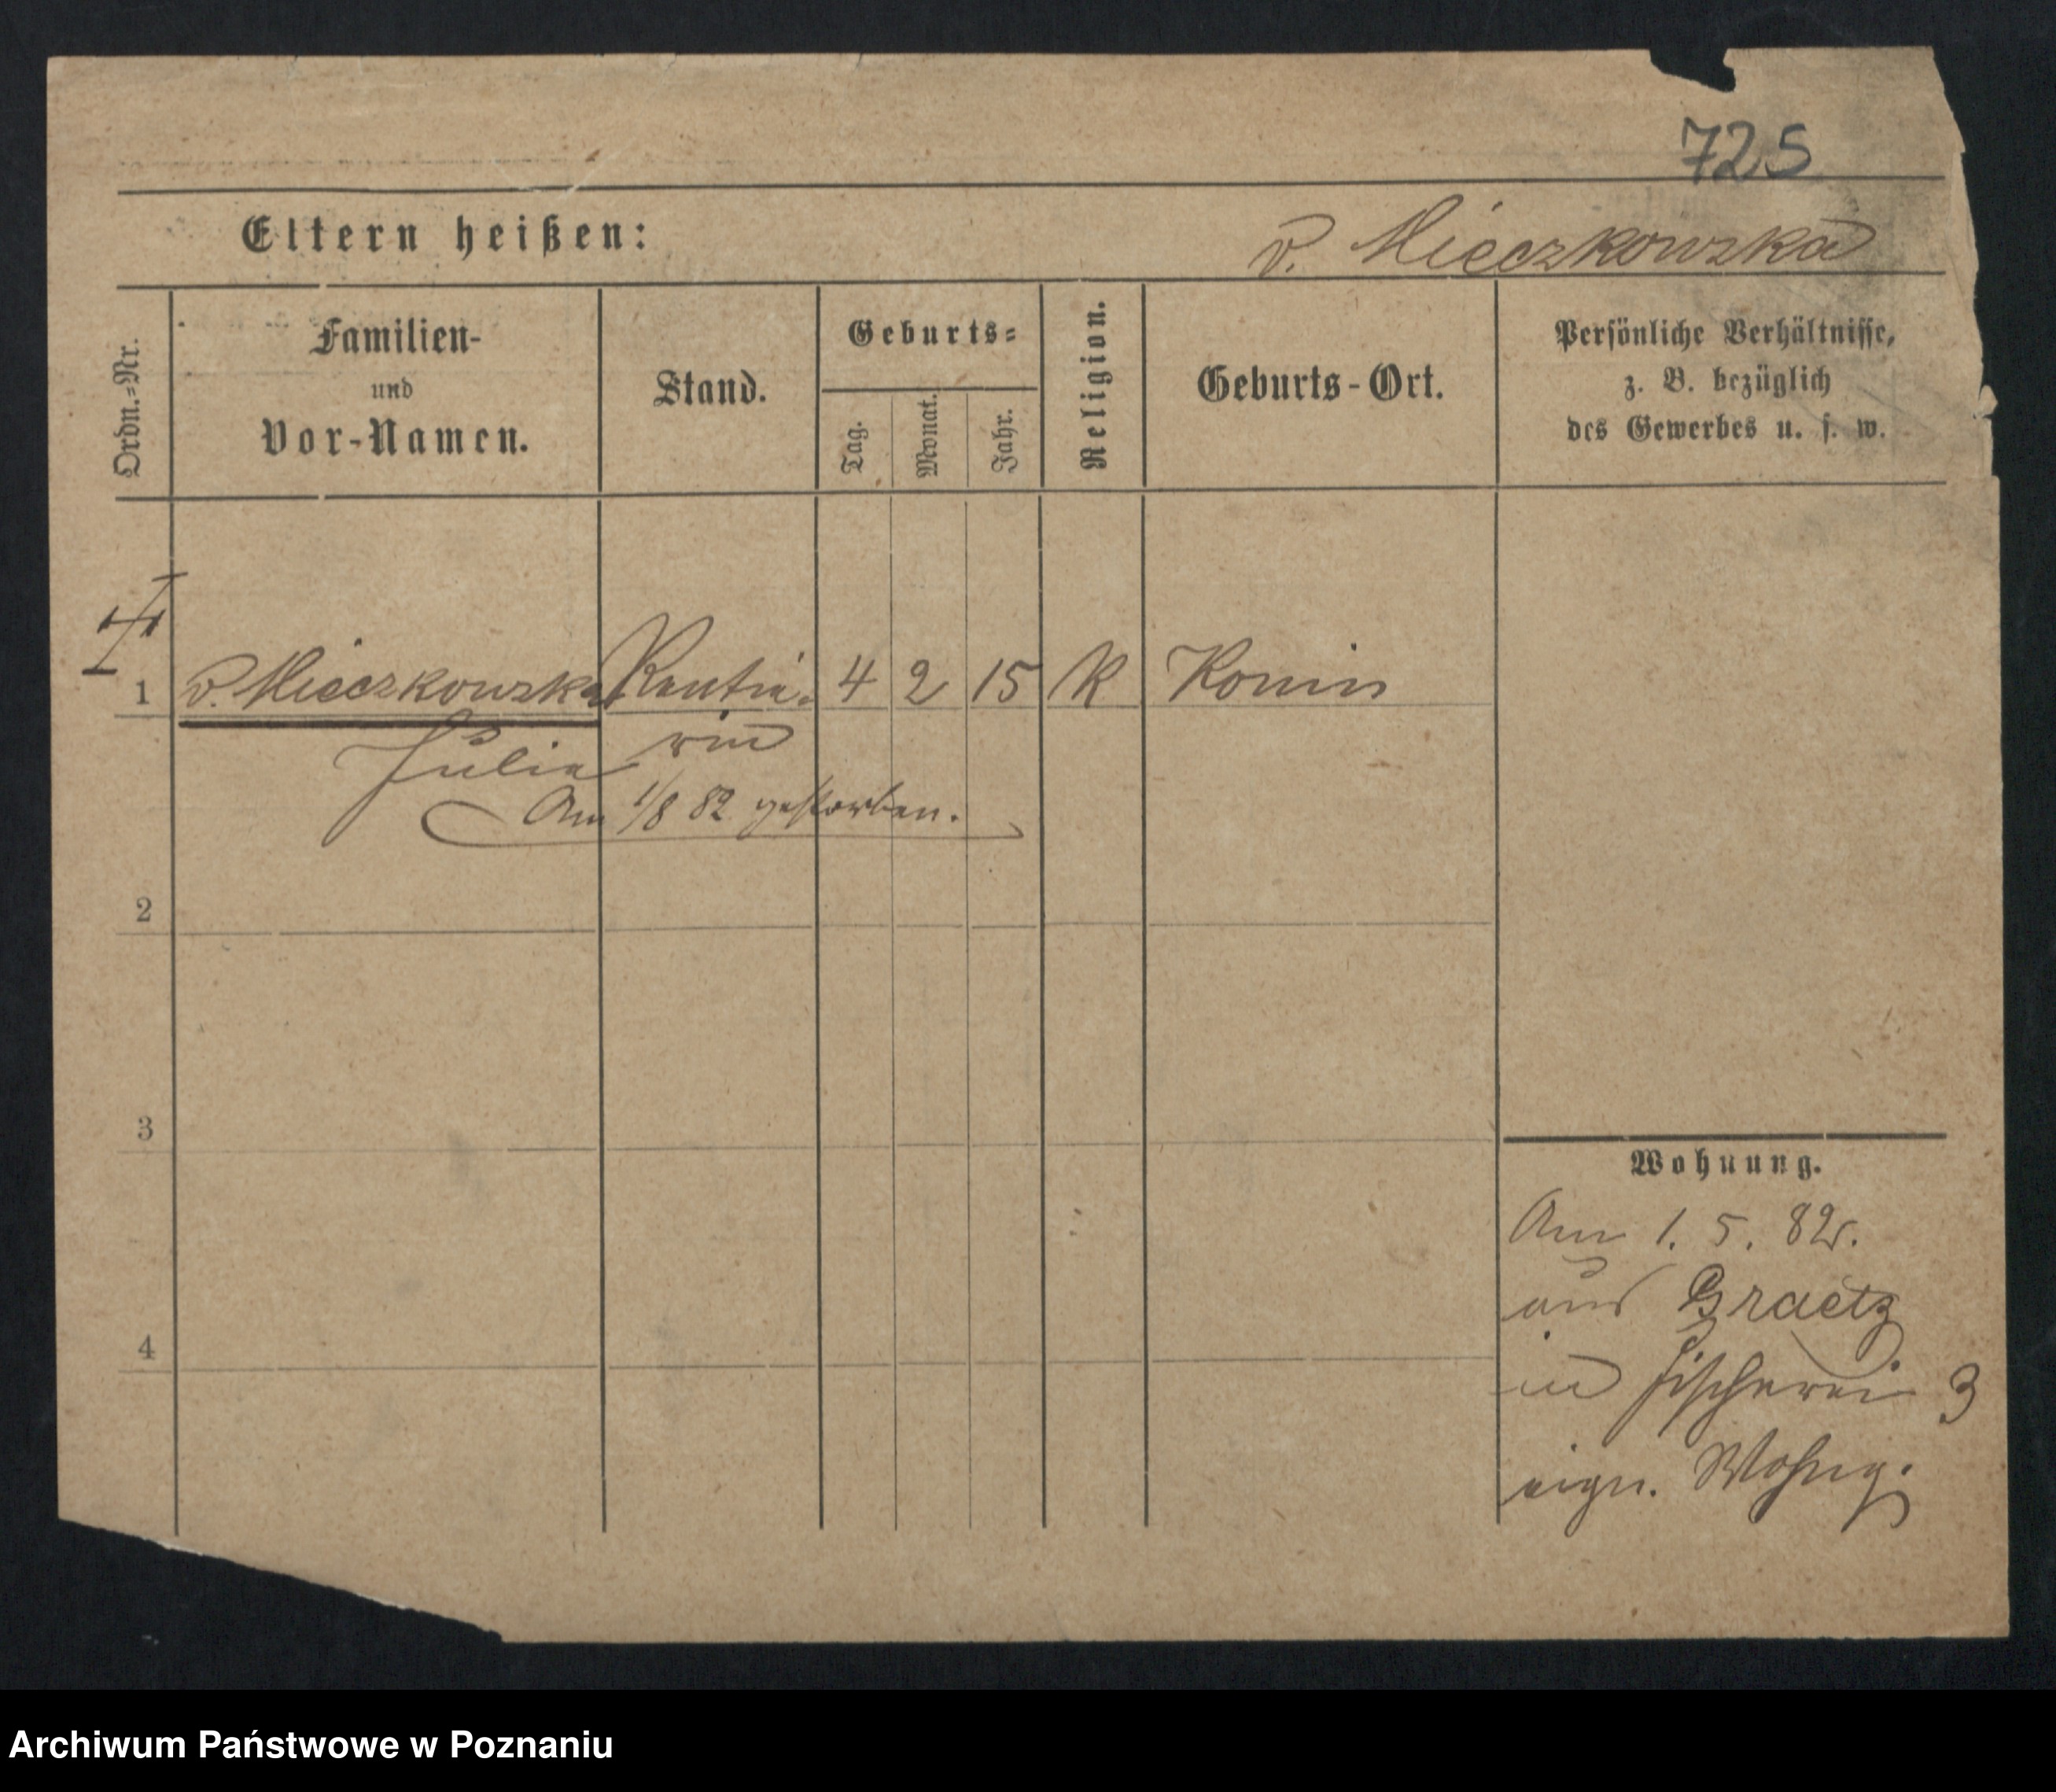 725
Eltern heißen:
v. Mieczkowska
Ordn.-Nr.
Familien-
und
Vor-Namen.
Stand.
Geburts-
Tag.
Monat.
Jahr.
Religion.
Geburts-Ort.
Persönliche Verhältnisse,
z. B. bezüglich
des Gewerbes u. s. w.
1 v. Mieczkowska Rentie- 4 2 15 K Konin
Julia rin
Am 1/8 82 gestorben.
2
3
4
Wohnung.
Am 1. 5. 82.
aus Graetz
in Fischerei 3
eign. Wohng.
Archiwum Państwowe w Poznaniu